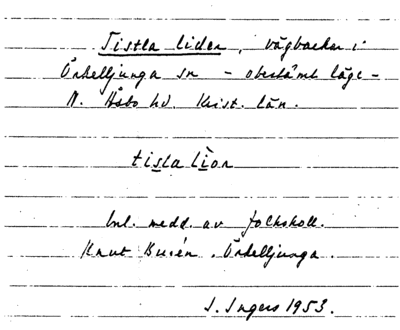 Tistla liden, vägbackar i
Örkelljunga sn - obestämt läge -
N. Åsbo hd. Krist. län.
tislalion
Enl. medd. av folkskoll.
Knut Burén. Örkelljunga.
I. Ingers 1953.